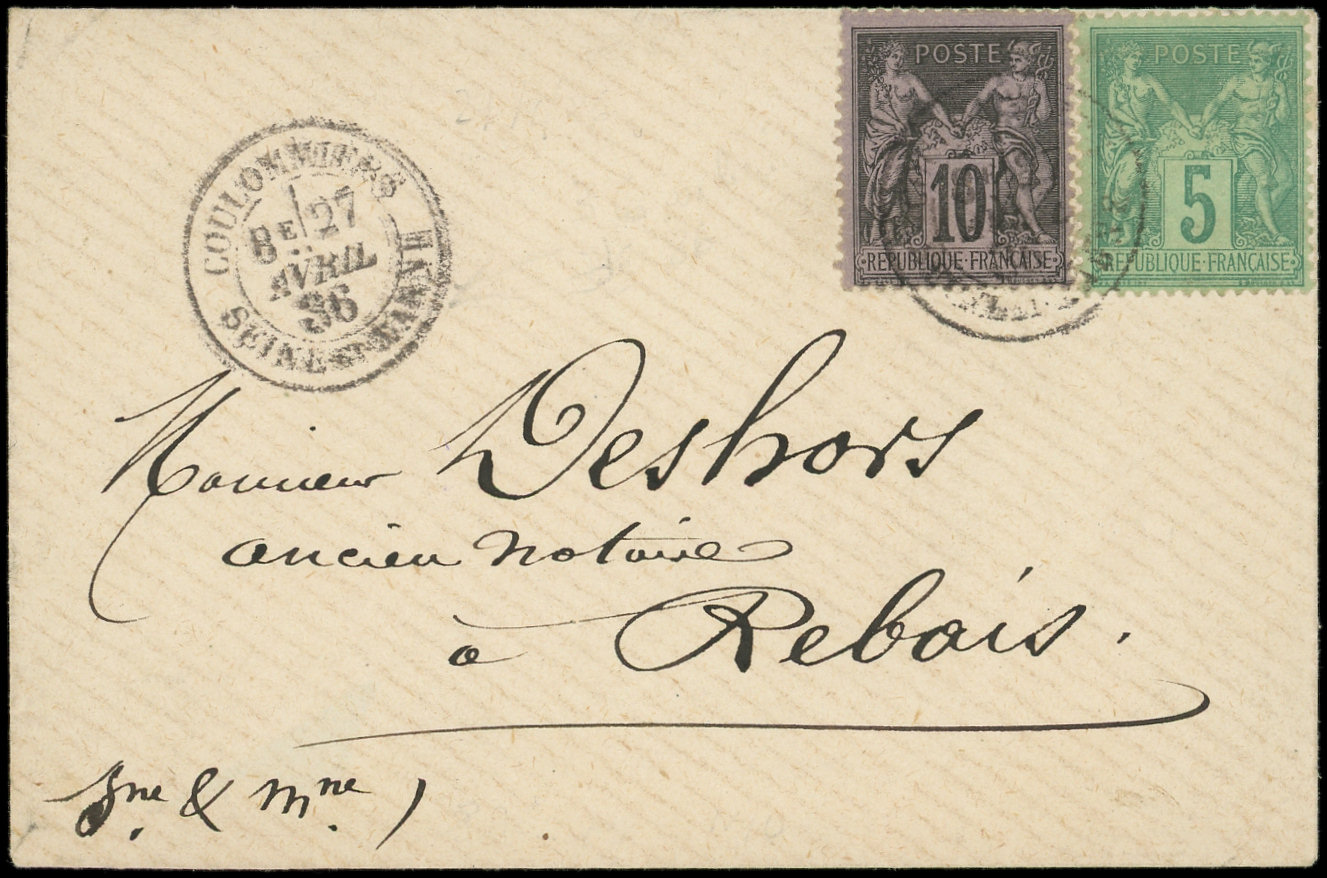 POSTE
10
REPUBLIQUE·FRANÇAISE
POSTE
5
REPUBLIQUE·FRANÇAISE
COULOMMIERS
27
AVRIL
86
SEINE-ET-MARNE
Monsieur Deshors
ancien notaire
à Rebais.
Sne & Mne )